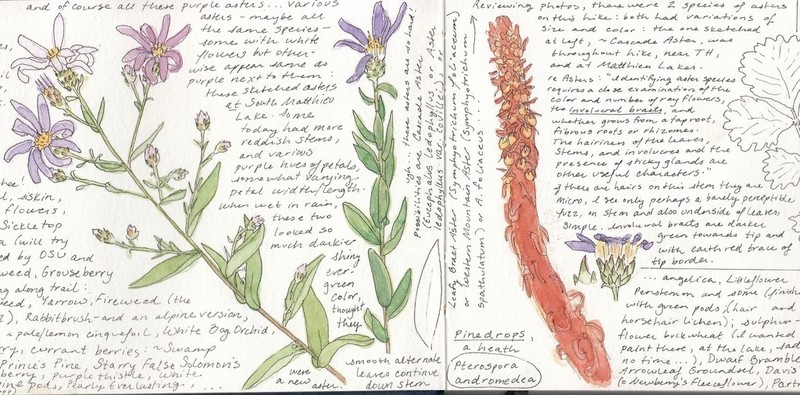 and of course all these purple asters... various
asters - maybe all
the same species -
some with white
flowers but other-
wise appear same as
purple next to them:
these sketched asters
at South Matthieu
Lake. Some
today had more
reddish stems,
and various
purple hues of petals,
somewhat varying
petal width/length.
When wet in rain,
these two
looked so
much darker
shiny
ever-
green
color,
thought
they
were
a new aster.
smooth alternate
leaves continue
down stem
ugh... these asters are so hard!
Possibilities are Cascade Aster
(Eucephalus ledophyllus or Aster
ledophyllus var. covillei) or
Leafy Bract Aster (Symphyotrichum foliaceum)
or Western Mountain Aster (Symphyotrichum
spathulatum) or A. foliaceus...
skin,
flowers,
Sickletop
(will try
ed by OSU and
weed, Grouseberry
ng along trail:
eed, Yarrow, Fireweed (the
), Rabbitbrush - and an alpine version,
a pale/lemon cinquefoil, White Bog Orchid,
rry, currant berries: ~ Swamp
Prince's Pine, Starry False Solomon's
berry, purple thistle, white
pine pods, Pearly Everlasting...
Reviewing photos, there were 2 species of asters
on this hike: both had variations of
size and color: the one sketched
at left, ~ Cascade Aster, was
throughout hike, near TH
and at Matthieu Lakes.
re Asters: "Identifying aster species
requires a close examination of the
color and number of ray flowers,
the involucral bracts, and
whether grows from a taproot,
fibrous roots or rhizomes.
The hairiness of the leaves,
stems, and involucres and the
presence of sticky glands are
other useful characters."
If there are hairs on this stem they are
micro, I see only perhaps a barely perceptible
fuzz, on stem and also underside of leaves,
simple. Involucral bracts are darker
green towards tip and
with earth red trace of
tip border.
... angelica, Littleflower
Penstemon and some (finish
with green pods, (hair and
horsehair lichens); sulphur
flower buckwheat (I wanted
paint there, at the lake, sad
no time...), Dwarf Bramble
Arrowleaf Groundsel, Davis
(= Newberry's Fleeceflower), Part
Pinedrops,
a heath
Pterospora
andromedea